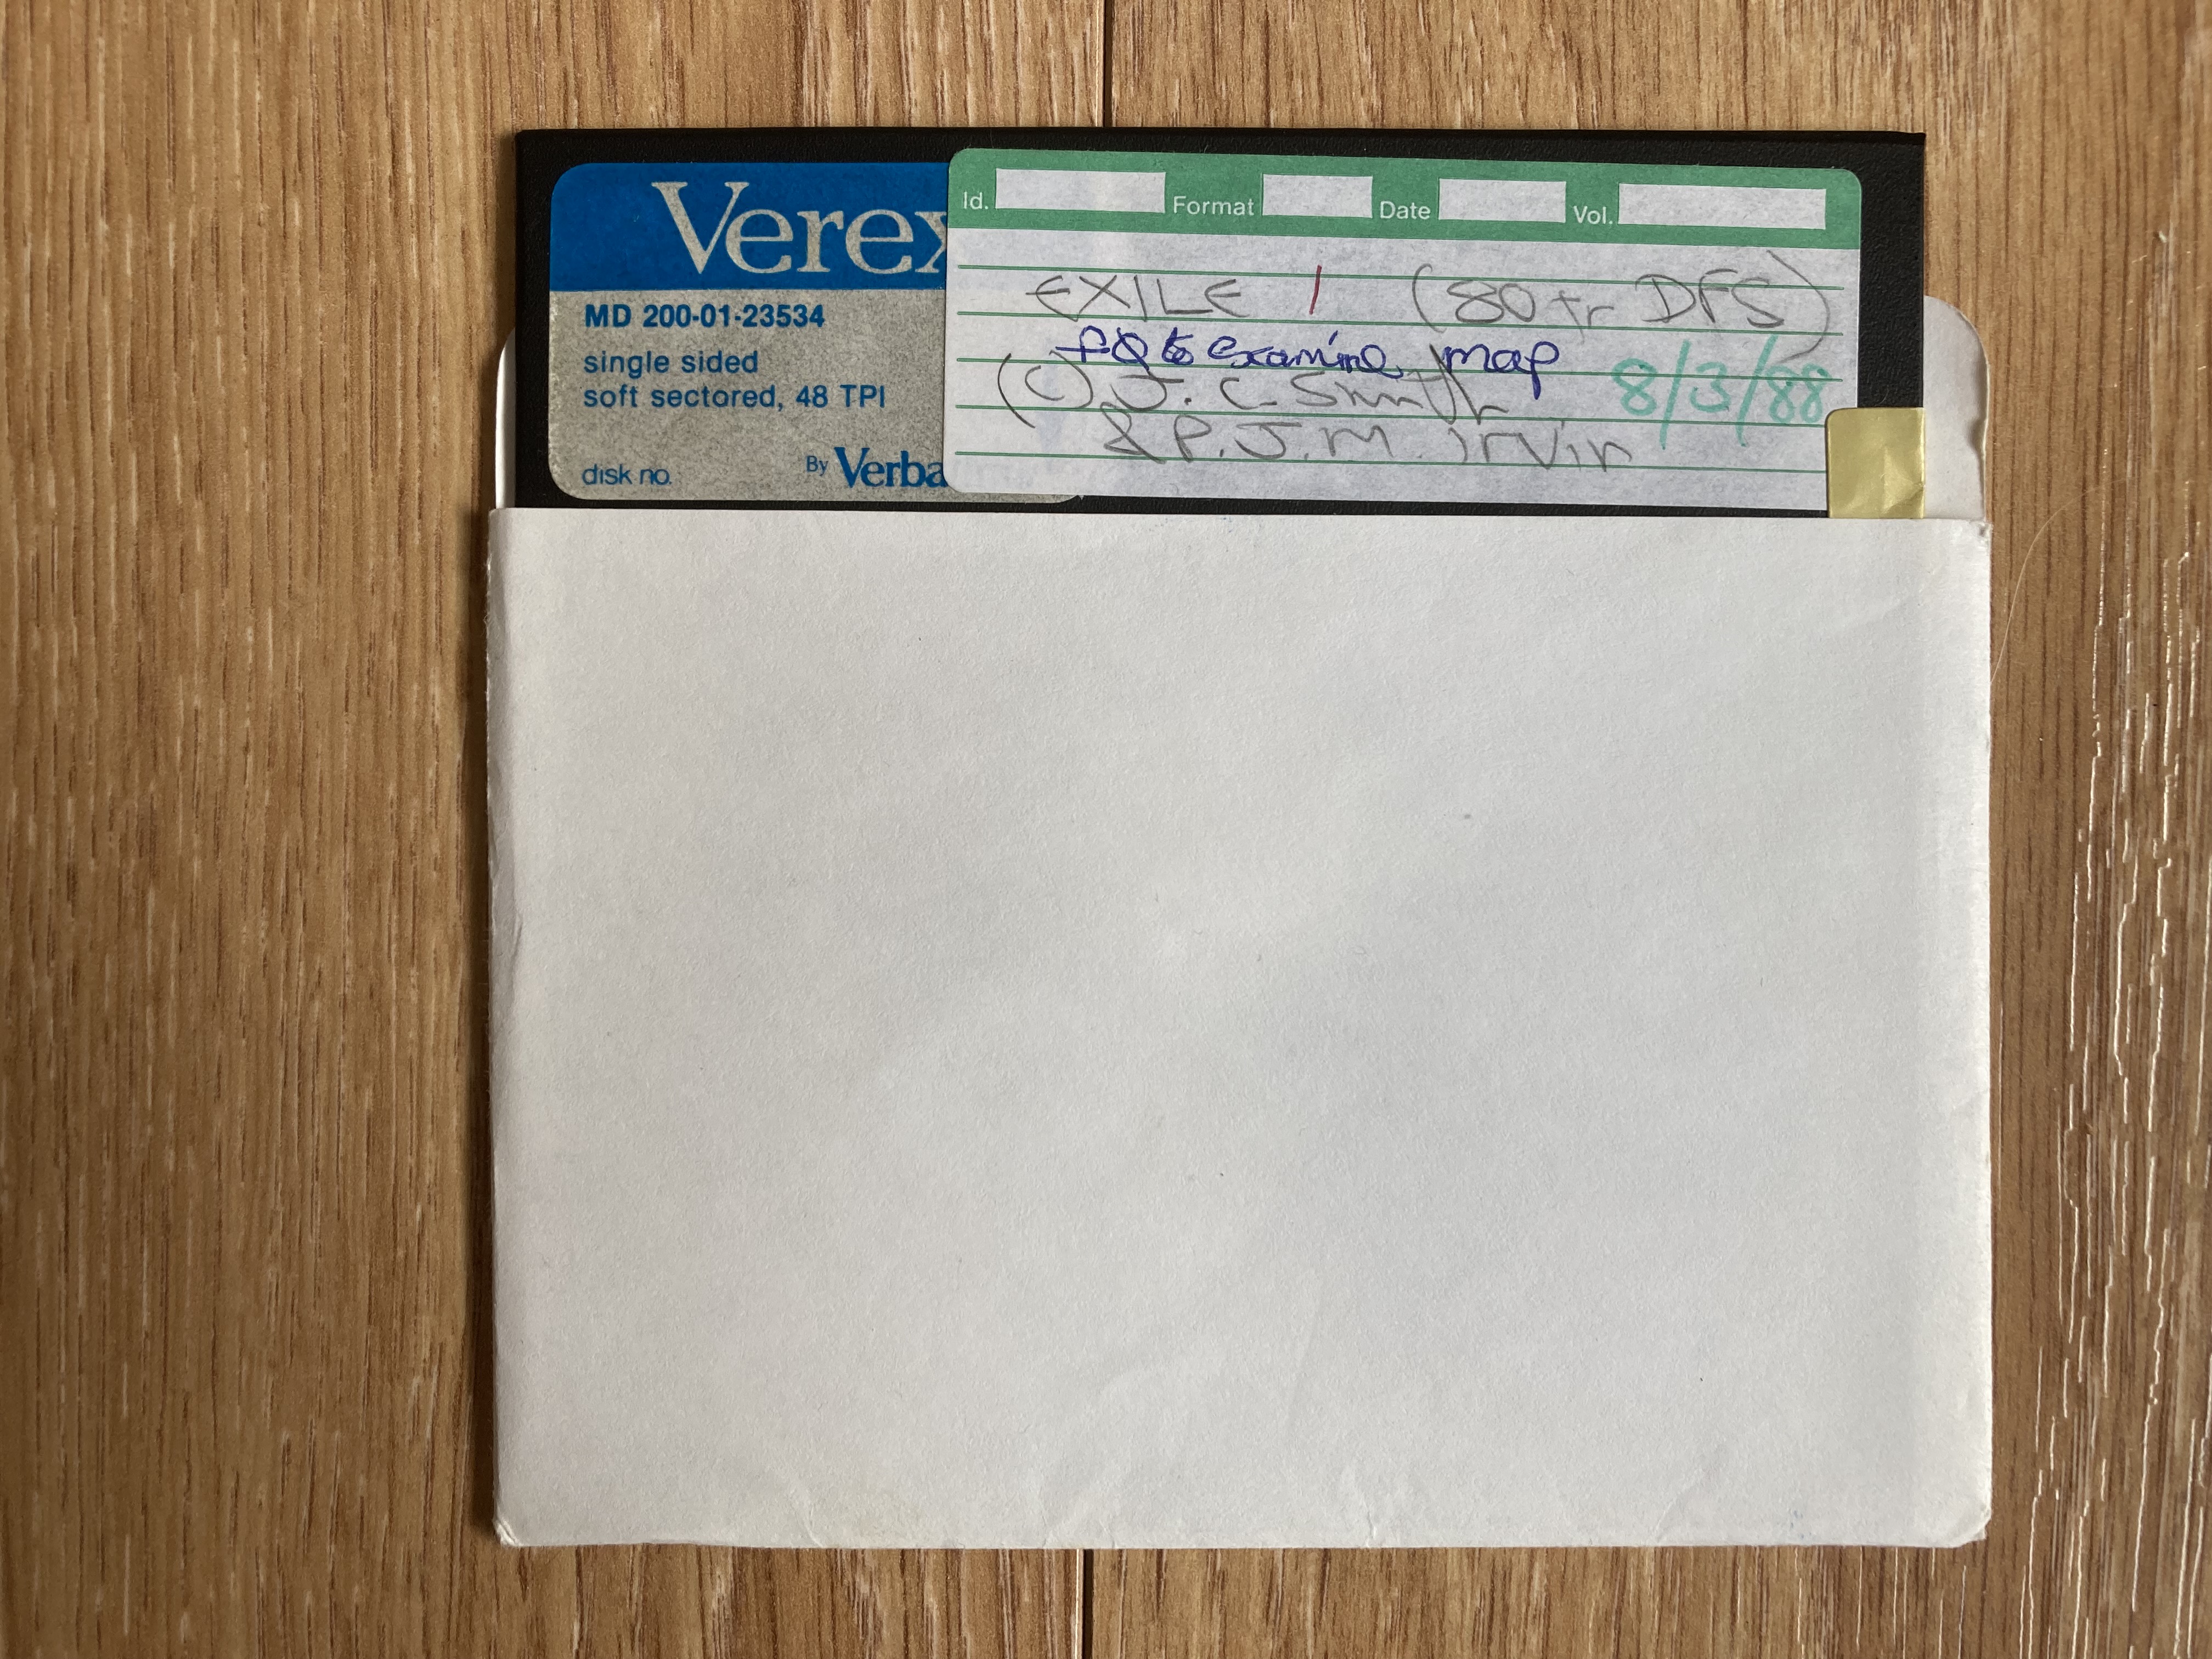 Verex
MD 200-01-23534
single sided
soft sectored, 48 TPI
disk no.
By Verba
Id. Format Date Vol.
EXILE 1 (80 tr DFS)
f0 to examine map
(C) J. C Smith
8/3/88
& P. J. M. Irvin